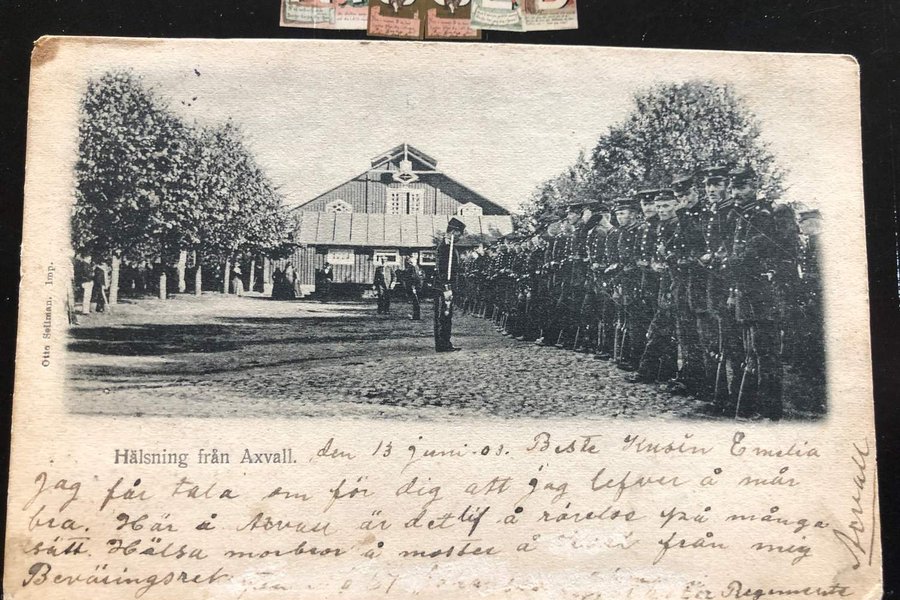 Otto Sellman. Imp.
Hälsning från Axvall. den 13 juni 03. Beste Kusin Emelia
Jag får tala om för dig att jag lefver å mår
bra. Här å Axvall är det lif å rörelse på många
sätt. Hälsa morbror å moster å från mig
Beväringsret Regements
Axvall